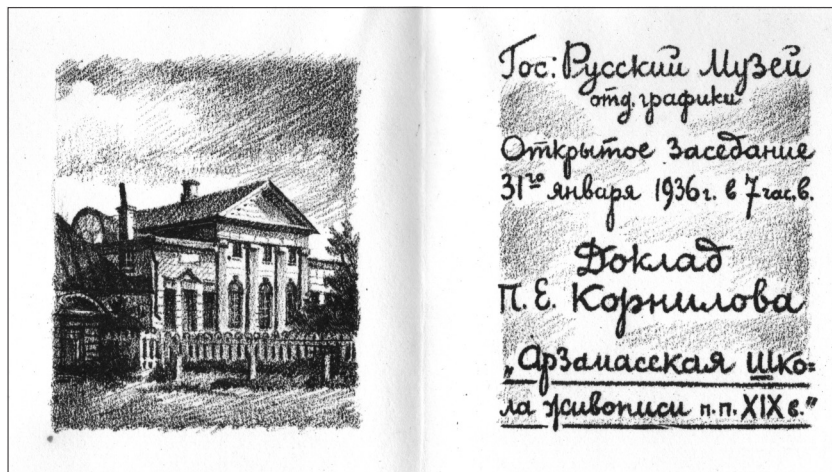 Гос: Русский Музей
отд. графики
Открытое Заседание
31го января 1936 г. в 7 час. в.
Доклад
П. Е. Корнилова
„Арзамасская Шко=
ла живописи п.п. XIX в.”